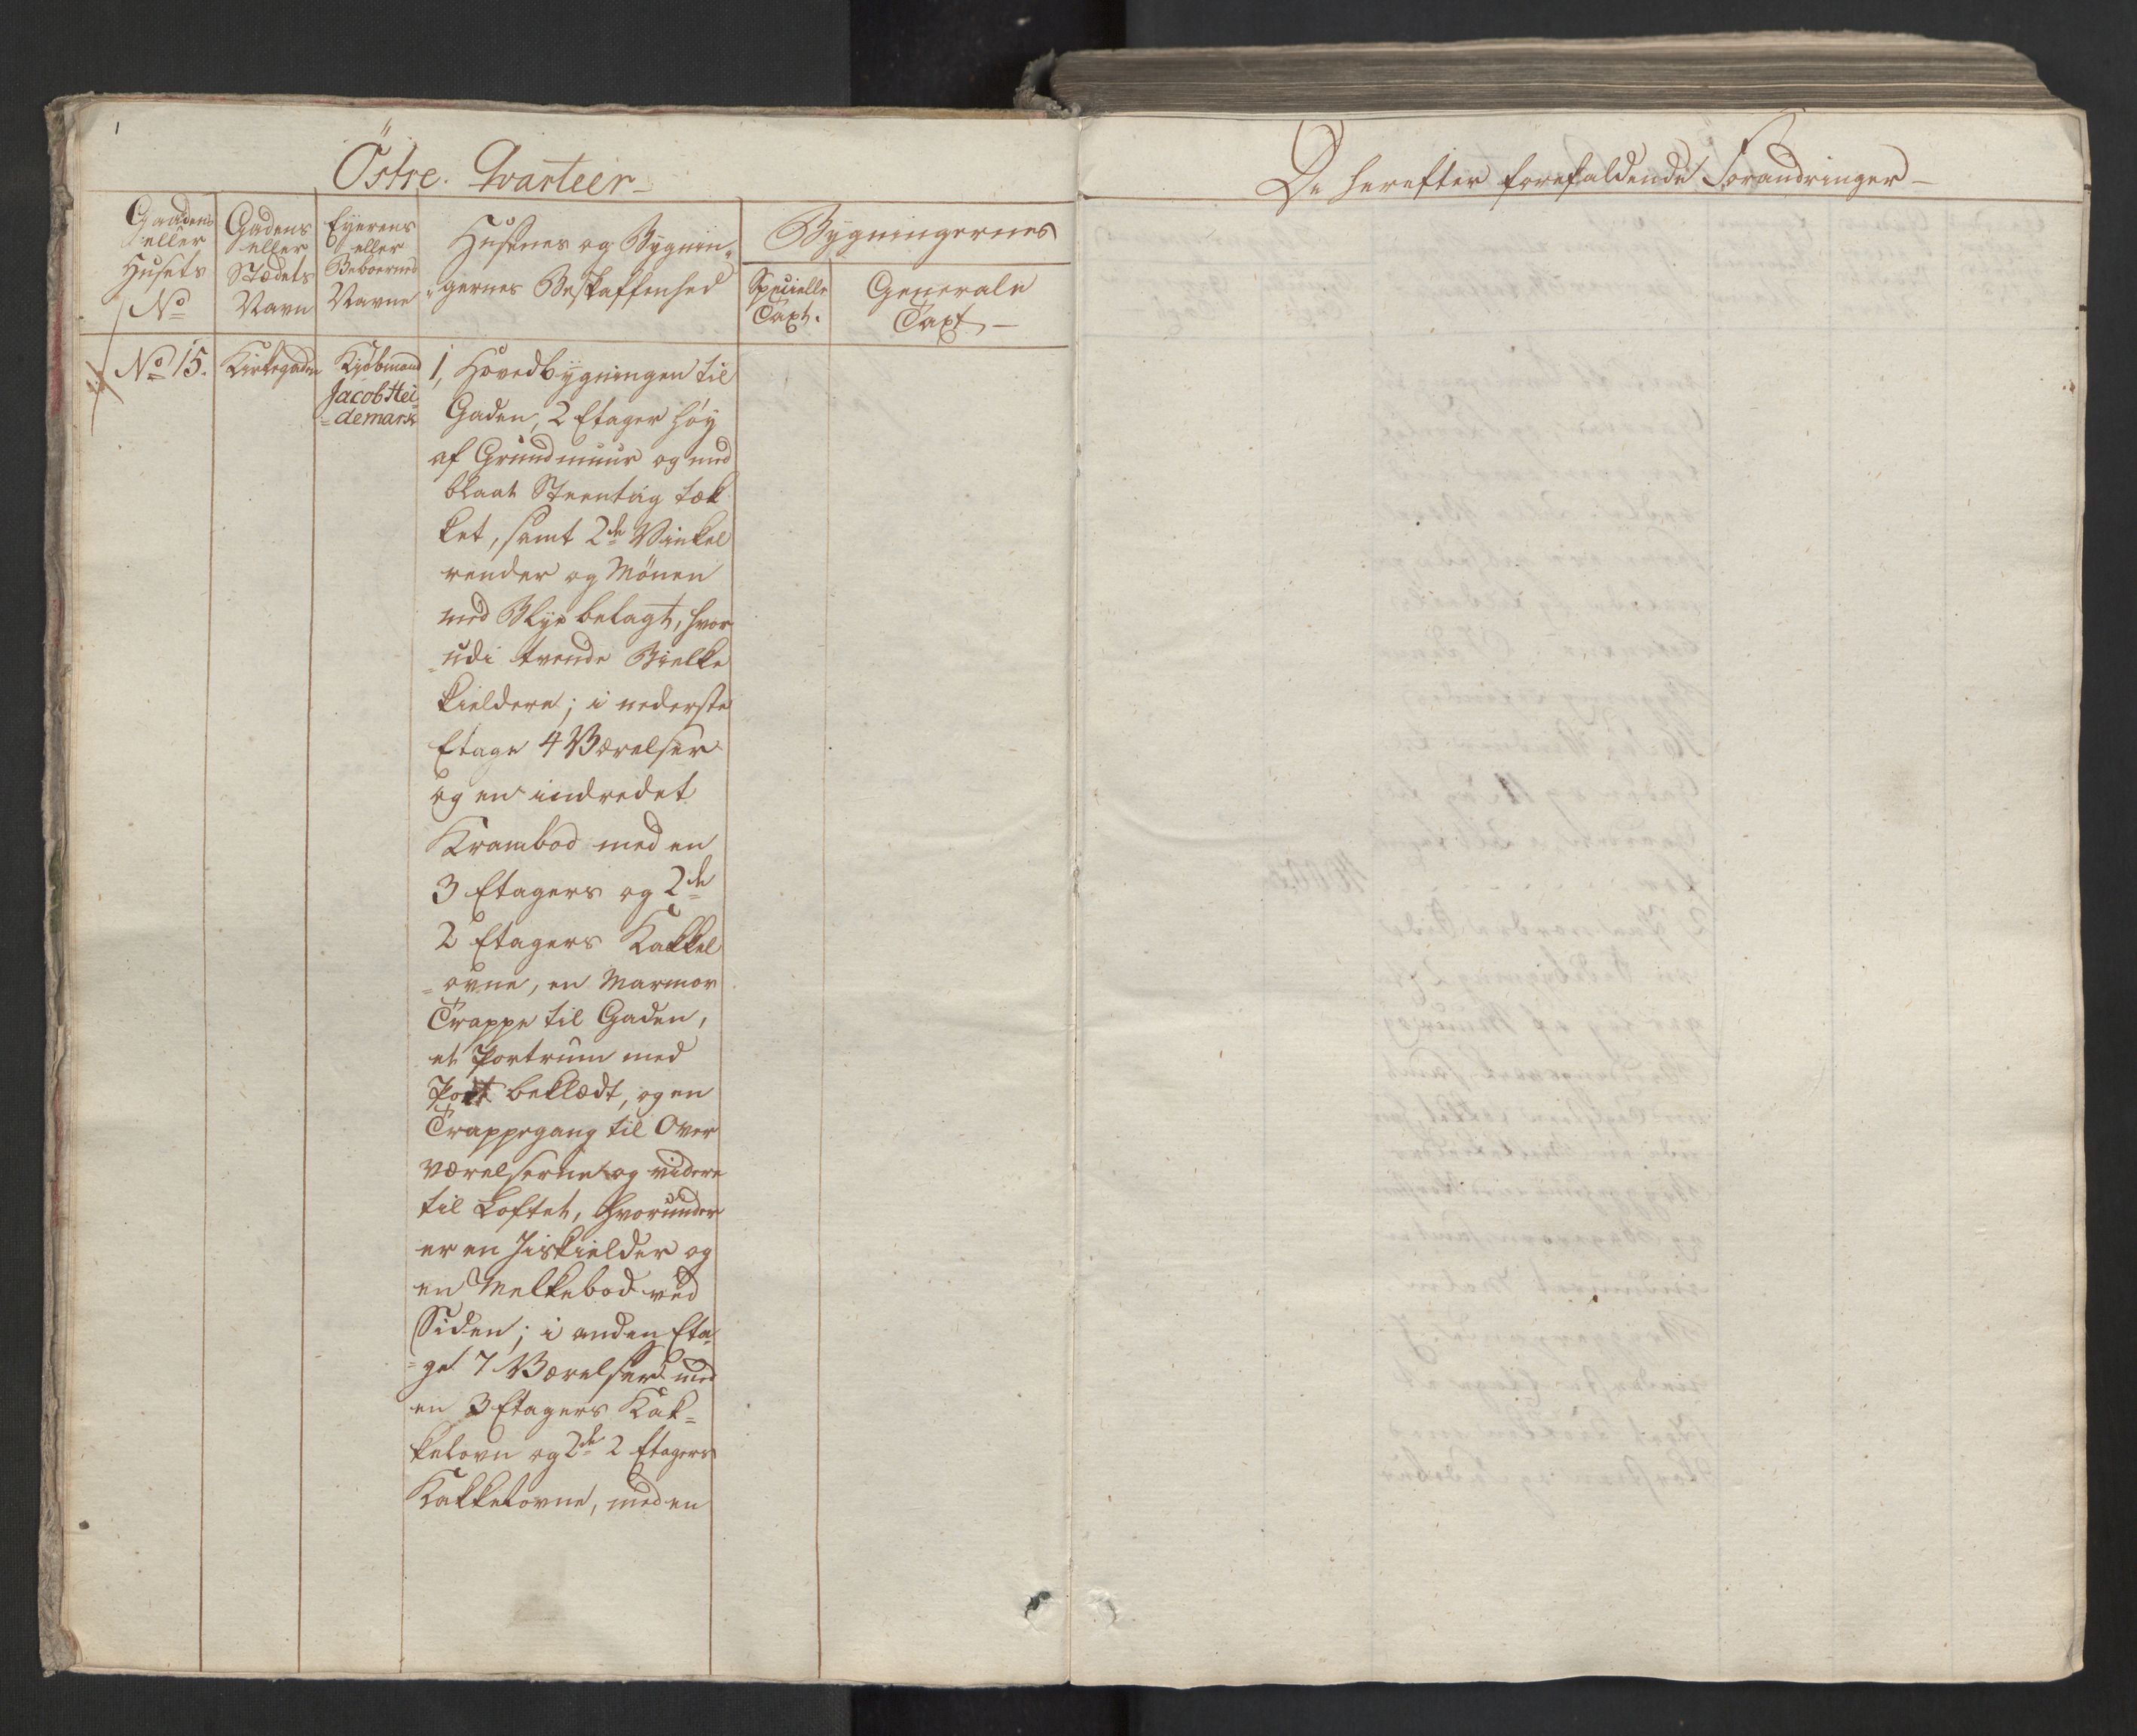 1
Östre. Qvarteer
De herefter forefaldende Forandringer
Gaadens
eller
Husets
No
Gadens
eller
Stædets
Navn
Eyerens
eller
Beboernes
Navne
Husenes og Bygnin-
gernes Beskaffenhed
Bygningernes
Specielle
Taxt.
Generale
Taxt
No 15.
Kirkegaden
Kjöbmand
Jacob Hei-
demark
1, Hovedbygningen til
Gaden, 2 Etager høy
af Grundmuur og med
blaat Steentag tæk
ket, samt 2de Vinkel
render og Mönen
med Blye belagt, hvor
udi tvende Bielke
kieldere; i nederste
Etage 4 Værelser
og en indredet
Krambod med en
3 Etagers og 2de
2 Etagers Kakkel
ovne, en Marmor
Trappe til Gaden,
et Portrum med
Port beklædt, og en
Trappegang til Over
værelserne og videre
til Loftet, hvorunder
er en Jiskielder og
en Melkebod ved
Siden; i anden Eta
ge 7 Værelser med
en 3 Etagers Kak-
kelovn og 2de 2 Etagers
Kakkelovne, med en